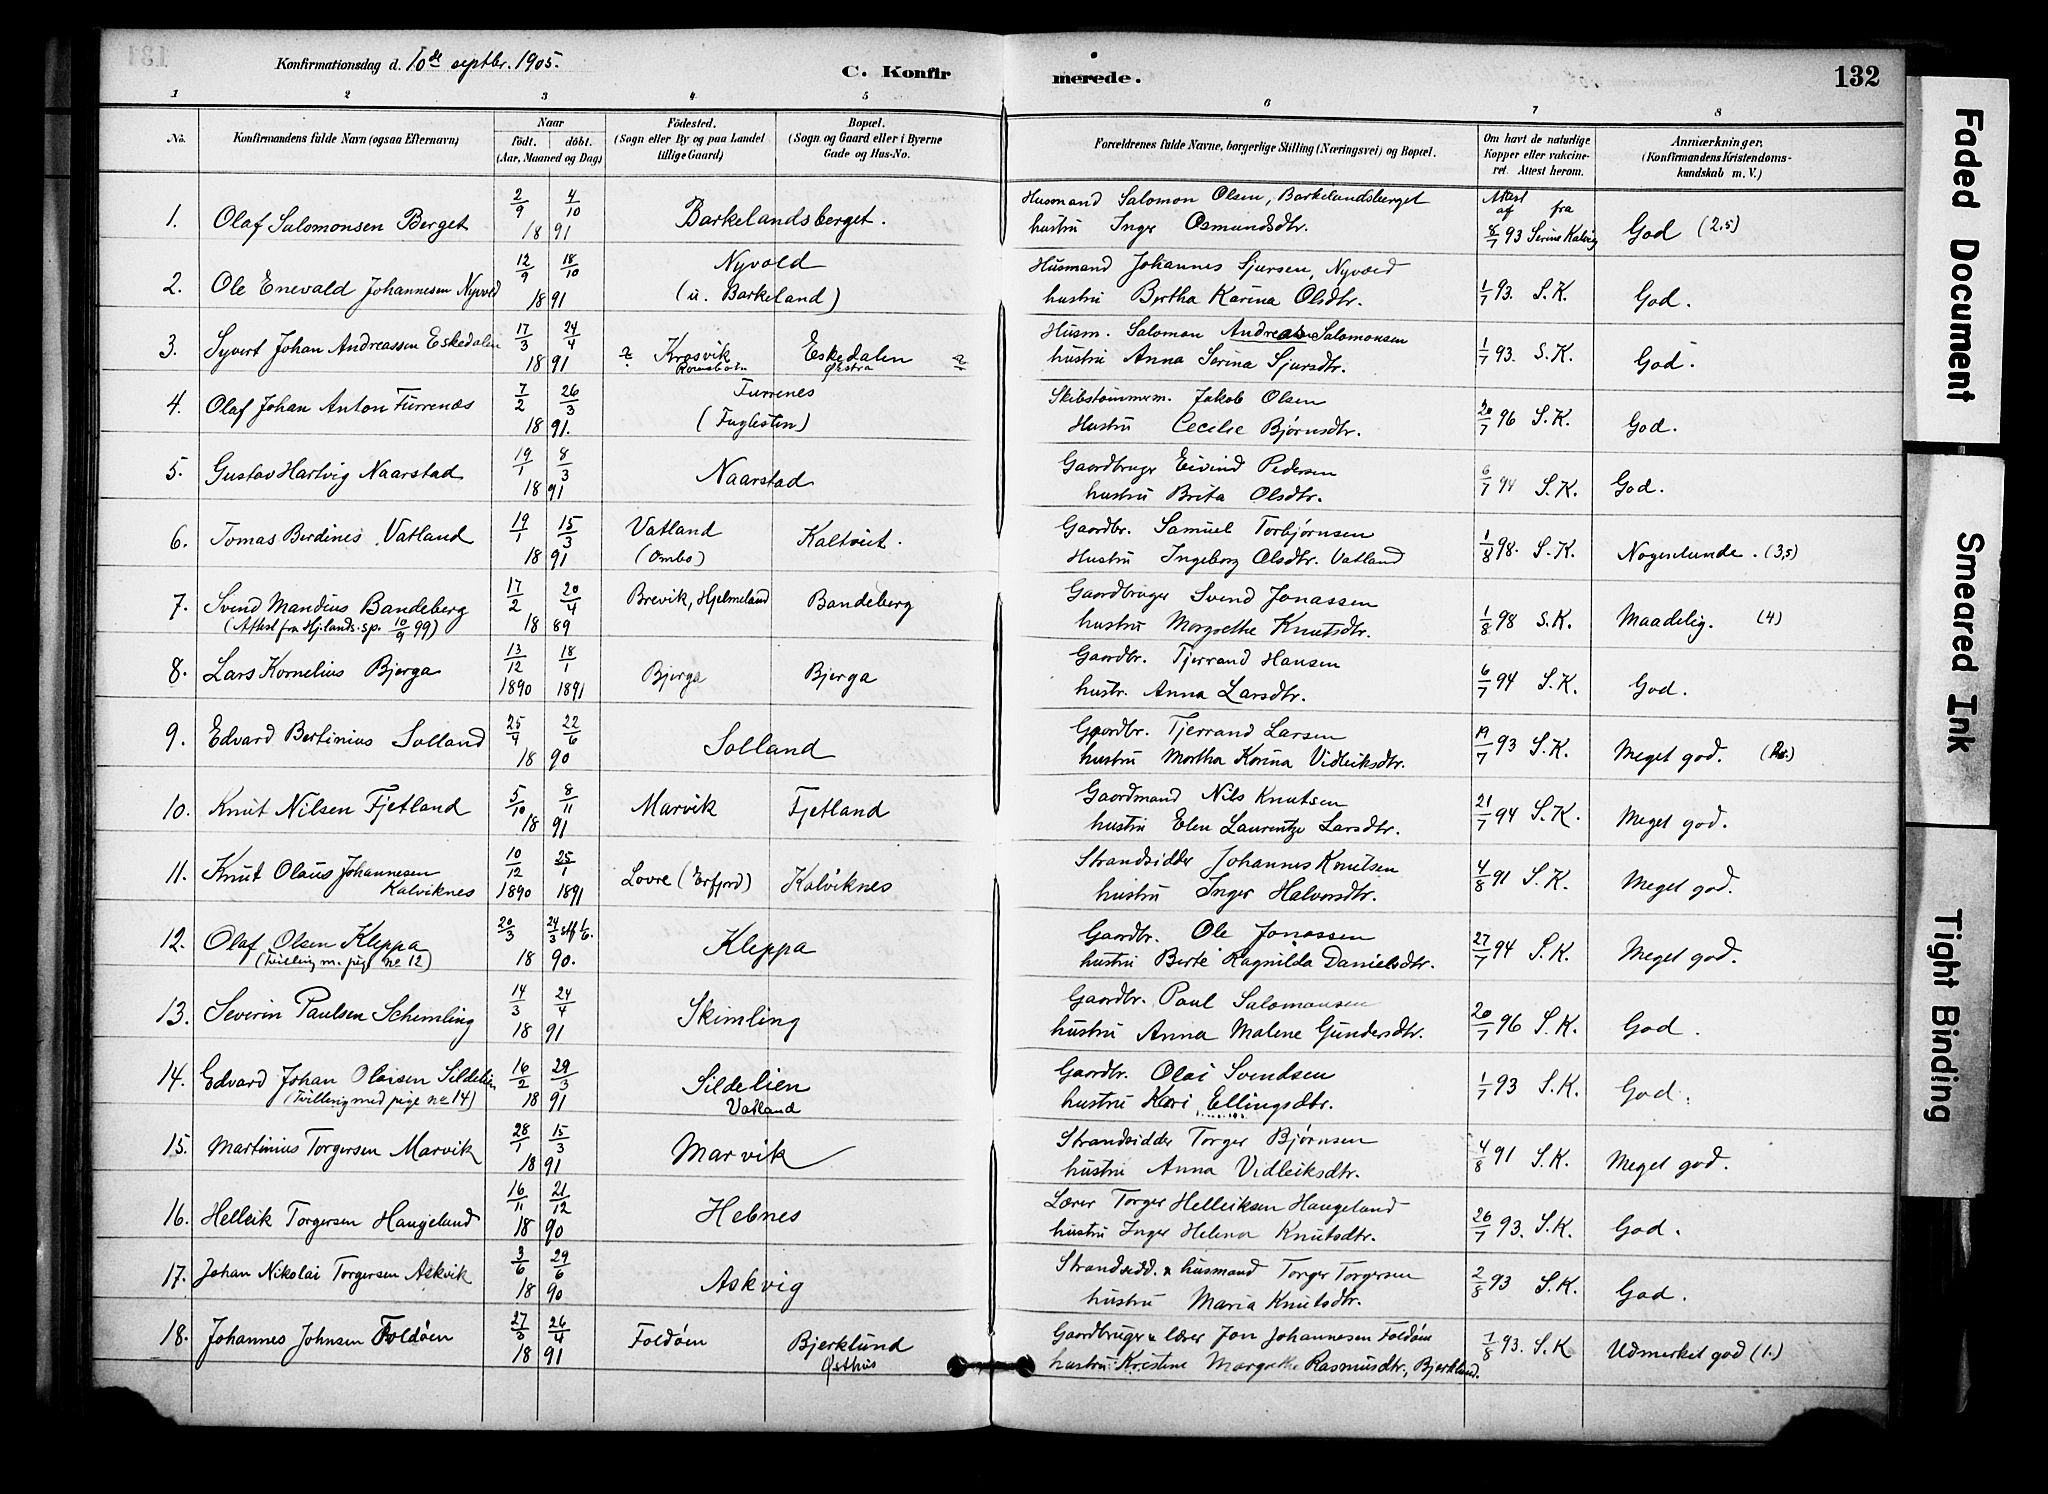 Konfirmationsdag d. 10de septbr. 1905.
C. Konfirmerede.
132
1 2 3 4 5 6 7 8
No.
Konfirmandens fulde Navn (ogsaa Efternavn)
Naar
födt. döbt.
(Aar, Maaned og Dag)
Födested.
(Sogn eller By og paa Landet
tillige Gaard)
Bopæl.
(Sogn og Gaard eller i Byerne
Gade og Hus-No.
Forældrenes fulde Navne, borgerlige Stilling (Næringsvei) og Bopæl.
Om havt de naturlige
Kopper eller vakcine-
ret. Attest herom.
Anmærkninger,
(Konfirmandens Kristendoms-
kundskab m. V.)
1. Olaf Salomonsen Berget 2/9 4/10 1891 Barkelandsberget. Husmand Salomon Olsen, Barkelandsberget
hustru Inger Osmundsdtr. Attest af fra 8/7 93 Serine Kalvig God (2,5)
2. Ole Enevald Johannesen Nyvold 12/9 18/10 1891 Nyvold
(u. Barkeland) Husmand Johannes Sjursen, Nyvold
hustru Bertha Karina Olsdtr. 1/7 93. S.K. God.
3. Syvert Johan Andreassen Eskedalen 17/3 24/4 1891 Krosvik Eskedalen
Husm. Salomon Andreas Salomonsen
hustru Anna Serina Sjursdtr. 1/7 93. S.K. God.
4. Olaf Johan Anton Furrenes 7/2 26/3 1891. Furrenes
(Fuglesten) Skibstømmerm. Jakob Olsen
Hustru Cecilie Bjørnsdtr. 20/7 96 S.K. God.
5. Gustav Hartvig Naarstad 19/1 8/3 1891 Naarstad Gaardbruger Eivind Pedersen
hustru Brita Olsdtr. 6/7 94 S.K. God.
6. Tomas Berdines Vatland 19/1 15/3 1891 Vatland
(Ombo) Kaltveit. Gaardbr. Samuel Torbjørnsen
Hustru Ingeborg Olsdtr. Vatland 1/8 98. S.K. Nogenlunde. (3,5)
7. Svend Mandius Bandeberg 17/2 20/4 1889 Brevik, Hjelmeland Bandeberg
(Attest fra Hj.lands. sp. 10/9 99) Gaardbruger Svend Jonassen
hustru Margrethe Knutsdtr. 1/8 98 S.K. Maadelig. (4)
8. Lars Kornelius Bjerga 13/12 1890 18/1 1891 Bjerga Bjerga Gaardbr. Tjerrand Hansen
hustr. Anna Larsdtr. 6/7 94 S.K. God.
9. Edvard Bertinius Solland 25/4 22/6 1890 Solland Gaardbr. Tjerrand Larsen
hustru Martha Karina Vidleiksdtr. 19/7 93 S.K. Meget god.
10. Knut Nilsen Fjetland 5/10 8/11 1891 Marvik Fjetland Gaardmand Nils Knutsen
hustru Elen Laurentze Larsdtr. 21/7 94 S.K. Meget god.
11. Knut Olaus Johannesen
Kalviknes 10/12 1890 25/1 1891 Lovre (Erfjord) Kalviknes Strandsidder Johannes Knutsen
hustru Inger Halvorsdtr. 4/8 91 S.K. Meget god.
12. Olaf Olsen Kleppa 20/3 24/3 stf 1/6. 1890. Kleppa
(Tvilling m. pige no 12) Gaardbr. Ole Jonassen
hustru Berte Ragnilda Danielsdtr. 27/7 94 S.K. Meget god.
13. Severin Paulsen Schimling 14/3 24/4 1891 Skimling Gaardbr. Paul Salomonsen
hustru Anna Malene Gundersdtr. 20/7 96 S.K. God.
14. Edvard Johan Olaisen Sildelien 16/2 29/3 1891 Sildelien
(Tvilling med pige no 14) Vatland Gaardbr. Olai Svendsen
hustru Kari Ellingsdtr. 1/7 93 S.K. God.
15. Martinius Torgersen Marvik 28/1 15/3 1891 Marvik Strandsidder Torger Bjørnsen
hustru Anna Vidleiksdtr. 4/8 91 S.K. Meget god.
16. Helleik Torgersen Haugeland 16/11 21/12 1890 Hebnes Lærer Torger Helleiksen Haugeland
hustru Inger Helena Knutsdtr. 26/7 93. S.K. God.
17. Johan Nikolai Torgersen Askvik 3/6 29/6 1890 Askvig Strandsidd. & husmand Torger Torgersen
hustru Maria Knutsdtr. 2/8 93 S.K. God.
18. Johannes Johnsen Foldöen 27/3 26/4 1891 Foldöen Bjerklund
Østhus Gaardbruger & lærer Jon Johannesen Foldöen
hustru Kristine Margrethe Rasmusdtr., Bjerklund. 1/8 93. S.K Udmerket god (1.)
Faded Document
Smeared Ink
Tight Binding